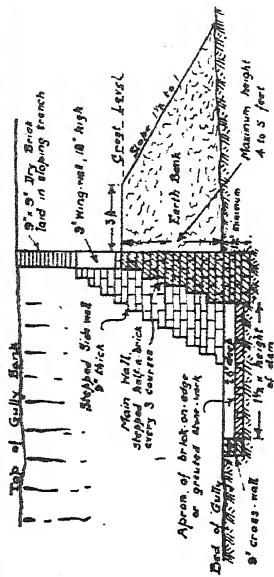 Top of Gully Bank
9" x 9" Dry Brick
laid in sloping trench
9" Wing-wall, 18" high
Crest Level
3 ft
Slope 1½ to 1
Earth Bank
Maximum height
4 to 5 feet
minimum
Stepped Side wall
9" thick
Main Wall,
stepped half-a-brick
every 3 courses
Apron of brick-on-edge
or grouted stone-work
Bed of Gully
9" cross-wall
1½ x height
of dam